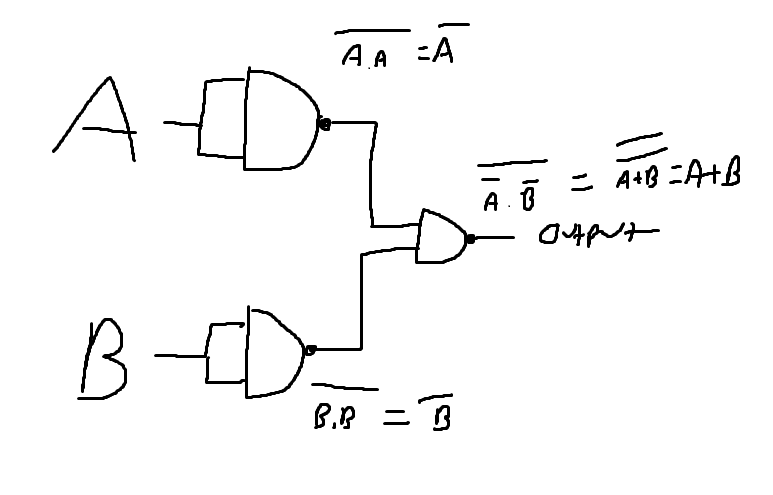 A̅.̅A̅ = A̅
A
A̅̅ ̅.̅ ̅B̅̅ = A̿+̿B̿ = A+B
Output
B
B̅.̅B̅ = B̅